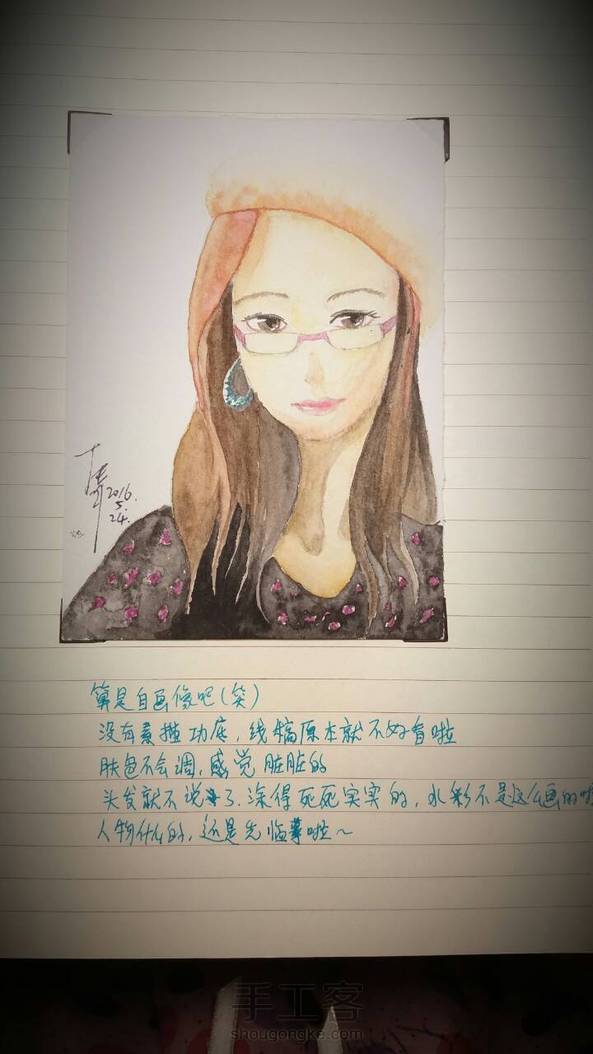 2016.
5.
24.
算是自画像吧(笑)
没有素描功底,线稿原本就不好看啦
肤色不会调,感觉脏脏的
头发就不说了.涂得死死实实的,水彩不是这么画的啦
人物什么的,还是先临摹啦~
手工客
shougongke.com